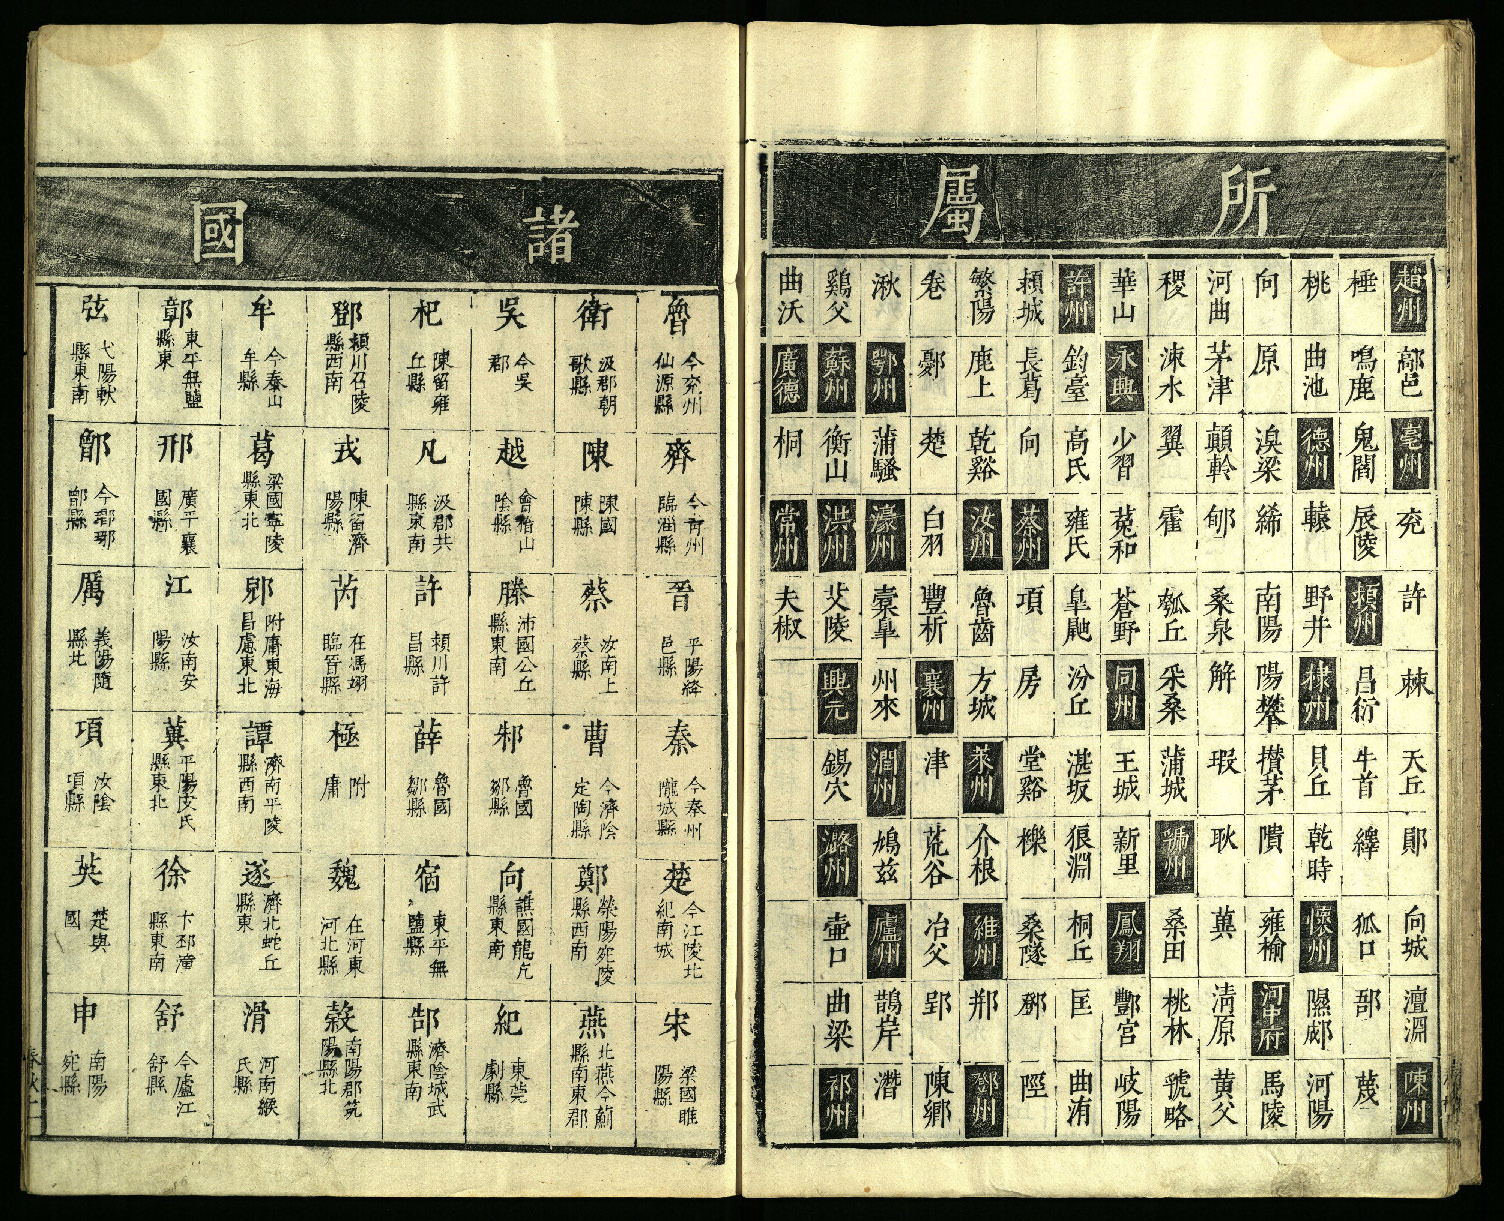 所屬
趙州 鄗邑 亳州 兖 許 棘 天丘 郹 向城 澶淵 陳州
棰 鳴鹿 鬼閻 辰陵 潁州 昌衍 牛首 繹 狐口 郚 蔑
桃 曲池 德州 轅 野井 棣州 貝丘 乾時 懷州 隰郕 河陽
向 原 湨梁 絺 南陽 陽樊 攅茅 隤 雍榆 河中府 馬陵
河曲 茅津 顛軨 郇 桑泉 解 瑕 耿 冀 清原 黄父
稷 涑水 翼 霍 瓠丘 采桑 蒲城 虢州 桑田 桃林 虢略
華山 永興 少習 菟和 蒼野 同州 王城 新里 鳳翔 酆宮 岐陽
許州 鈞臺 高氏 雍氏 皐鼬 汾丘 湛坂 狼淵 桐丘 匡 曲洧
潁城 長葛 向 蔡州 項 房 堂谿 櫟 桑隧 鄧 陘
繁陽 鹿上 乾谿 汝州 魯齒 方城 萊州 介根 維州 邢 鄧州
卷 鄾 楚 白羽 豐析 襄州 津 荒谷 冶父 郢 陳鄉
湫 鄂州 蒲騷 濠州 櫜皐 州來 潤州 鳩兹 廬州 鵲岸 潛
鷄父 蘇州 衡山 洪州 艾陵 興元 錫穴 潞州 壷口 曲梁 祁州
曲沃 廣德 桐 常州 夫椒
諸國
魯 今兖州仙源縣
齊 今青州臨淄縣
晉 平陽絳邑縣
秦 今秦州隴城縣
楚 今江陵北紀南城
宋 梁國睢陽縣
衛 汲郡朝歌縣
陳 陳國陳縣
蔡 汝南上蔡縣
曹 今濟陰定陶縣
鄭 榮陽宛陵縣西南
燕 北燕今薊縣南東郡
吳 今吳郡
越 會稽山陰縣
滕 沛國公丘縣東南
邾 魯國鄒縣
向 譙國龍亢縣東南
紀 東莞劇縣
杞 陳留雍丘縣
凡 汲郡共縣東南
許 潁川許昌縣
薛 魯國鄒縣
宿 東平無鹽縣
郜 濟陰城武縣東南
鄧 潁川召陵縣西南
戎 陳留濟陽縣
芮 在馮翊臨晉縣
極 附庸
魏 在河東河北縣
榖 南陽郡筑陽縣北
牟 今泰山牟縣
葛 梁國寧陵縣東北
郳 附庸東海昌慮東北
譚 濟南平陵縣西南
遂 濟北蛇丘縣東
滑 河南緱氏縣
鄣 東平無鹽縣東
邢 廣平襄國縣
江 汝南安陽縣
冀 平陽皮氏縣東北
徐 下邳潼縣東南
舒 今廬江舒縣
弦 弋陽軑縣東南
鄫 今瑯琊鄫縣
厲 義陽隨縣北
項 汝陰項縣
英 楚與國
申 南陽宛縣